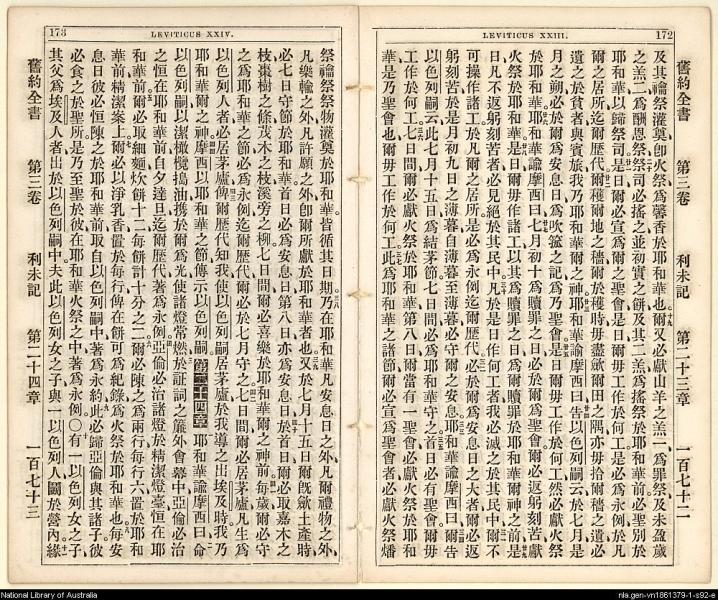 LEVITICUS XXIII.
172
舊約全書 第三卷 利未記 第二十三章 一百七十二
及其禴祭灌奠卽火祭爲馨香於耶和華也爾又必獻山羊之羔一爲罪祭及未盈歲
之羔二爲酬恩祭祭司必搖之並初實之餅及其二羔爲搖祭於耶和華前必聖別於
耶和華以歸祭司是日爾必宣爲爾之聖會是日爾毋工作於何工是必爲永例於凡
爾之居所迄爾歷代爾穫爾地之穡爾於穫時毋盡歛爾田之隅亦毋拾爾穡之遺必
遺之於貧者與賓旅我乃耶和華爾之神耶和華諭摩西曰告以色列嗣云於七月是
月之朔必於爾爲安息日爲吹箛之記爲乃聖會是日爾毋工作於何工然必獻火祭
於耶和華耶和華諭摩西曰七月初十爲贖罪之日必於爾爲聖會爾必返躬刻苦獻
火祭於耶和華是日爾毋作諸工以其爲贖罪之日爲爾贖罪於耶和華爾神之前是
日凡不返躬刻苦者必見絕於其民中凡於是日作何工者我必滅之於其民中爾不
可操作諸工於凡爾之居所是必爲永例迄爾歷代必於爾爲安息日之大者爾必返
躬刻苦於是月初九日之薄暮自薄暮至薄暮必守爾之安息耶和華諭摩西曰爾告
以色列嗣云此七月十五日爲結茅節七日間必爲耶和華守之首日必有聖會爾毋
工作於何工七日間爾必獻火祭於耶和華第八日爾當有一聖會必獻火祭於耶和
華是乃聖會也爾毋工作於何工此爲耶和華之諸節爾必宣爲聖會者必獻火祭燔
173
LEVITICUS XXIV.
祭禴祭祭物灌奠於耶和華皆循其日期乃在耶和華凡安息日之外凡爾禮物之外
凡樂輸之外凡許願之外卽爾所獻於耶和華者也又於七月十五日爾旣歛土產時
必七日守節於耶和華首日必爲安息日第八日亦爲安息日於首日爾必取嘉木之
枝棗樹之條茂木之枝溪旁之柳七日間爾必喜樂於耶和華爾之神前每歲爾必守
之爲耶和華之節必爲永例迄爾歷代爾必於七月守之七日間爾必居茅廬凡生爲
以色列人者必居茅廬俾爾歷代知我使以色列嗣居茅廬於我導之出埃及時我乃
耶和華爾之神摩西以耶和華之節傳示以色列嗣 第二十四章 耶和華諭摩西曰命
以色列嗣以潔橄欖搗油携於爾爲光使諸燈常燃於証詞之簾外會幕中亞倫必治
之恒在耶和華前自夕達旦迄爾歷代著爲永例亞倫必治諸燈於精潔燈臺恒在耶
和華前爾必取細麵炊餅十二每餅計十分之二爾必陳之爲兩行每行六置於耶和
華前精潔案上爾必以淨乳香置於每行俾在餅可爲紀錄爲火祭於耶和華也每安
息日彼必恒陳之於耶和華前取自以色列嗣中著爲永約此必歸亞倫與其諸子彼
必食之於聖所是乃至聖於彼在耶和華火祭之中著爲永例○有一以色列女之子
其父爲埃及人者出於以色列嗣中夫此以色列女之子與一以色列人鬭於營內緣
舊約全書 第三卷 利未記 第二十四章 一百七十三
National Library of Australia
nla.gen-vn1861379-1-s92-e